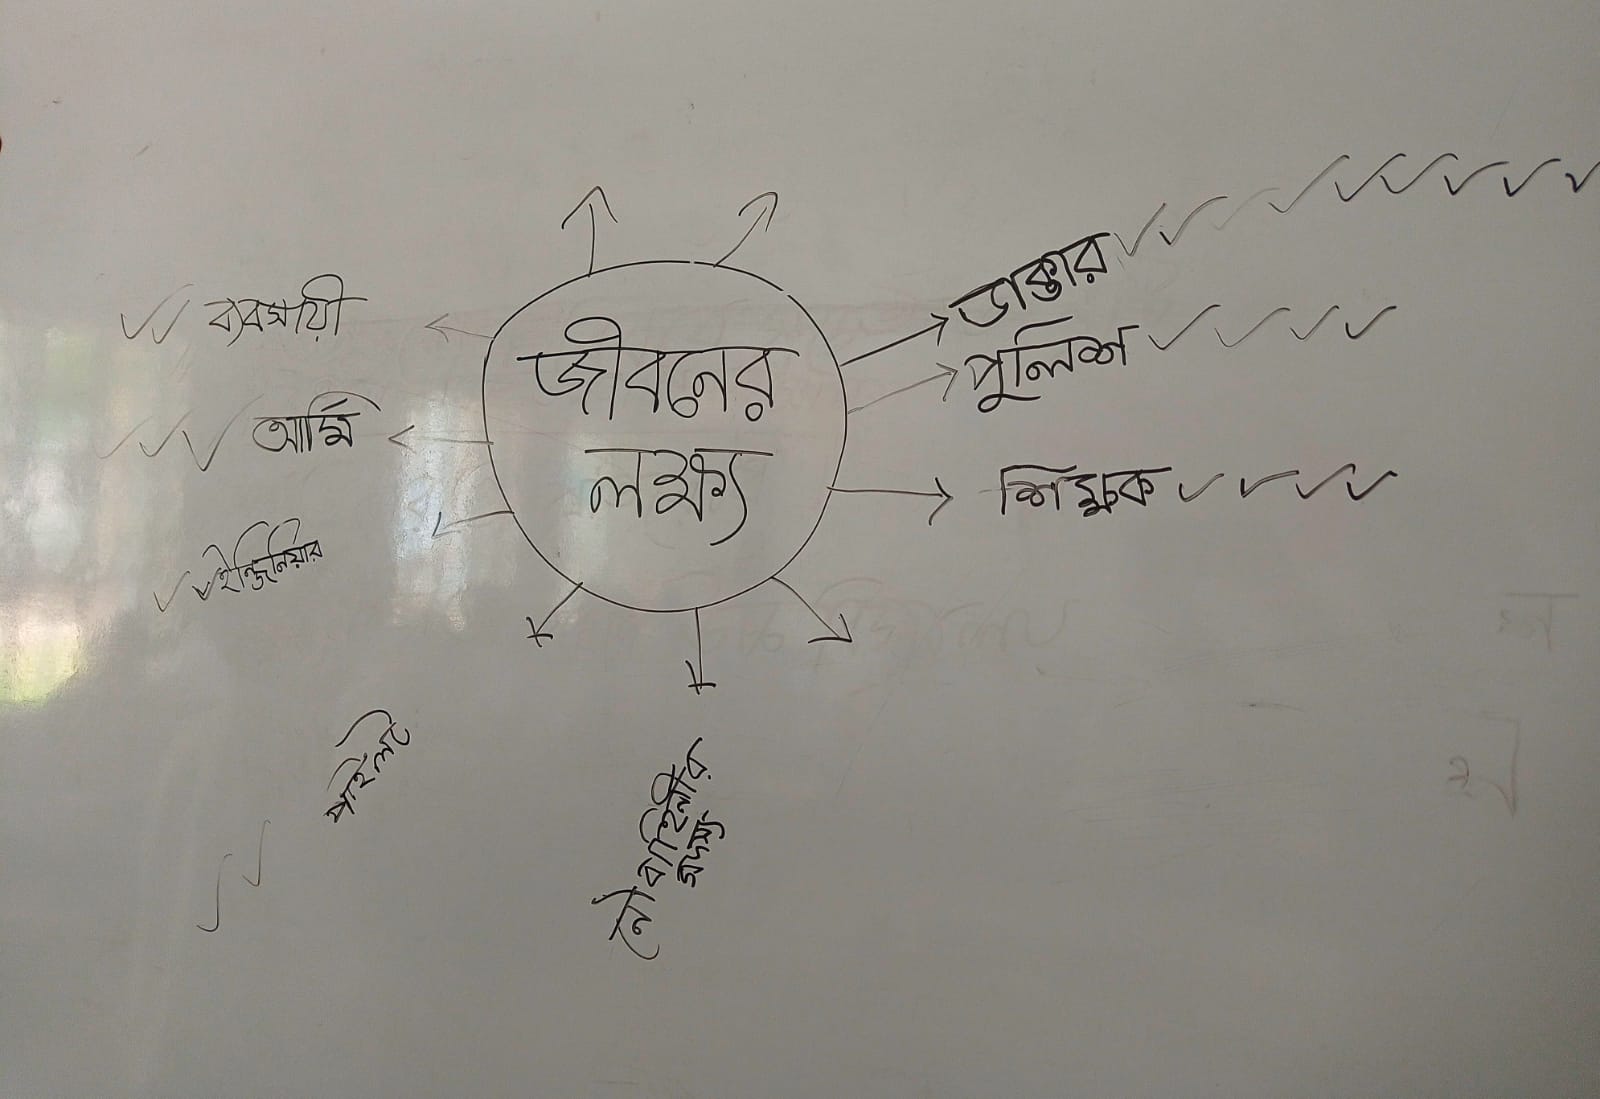 জীবনের
লক্ষ্য
ডাক্তার
পুলিশ
শিক্ষক
ব্যবসায়ী
আর্মি
ইন্জিনিয়ার
পাইলট
নৌ বাহিনীর
সদস্য